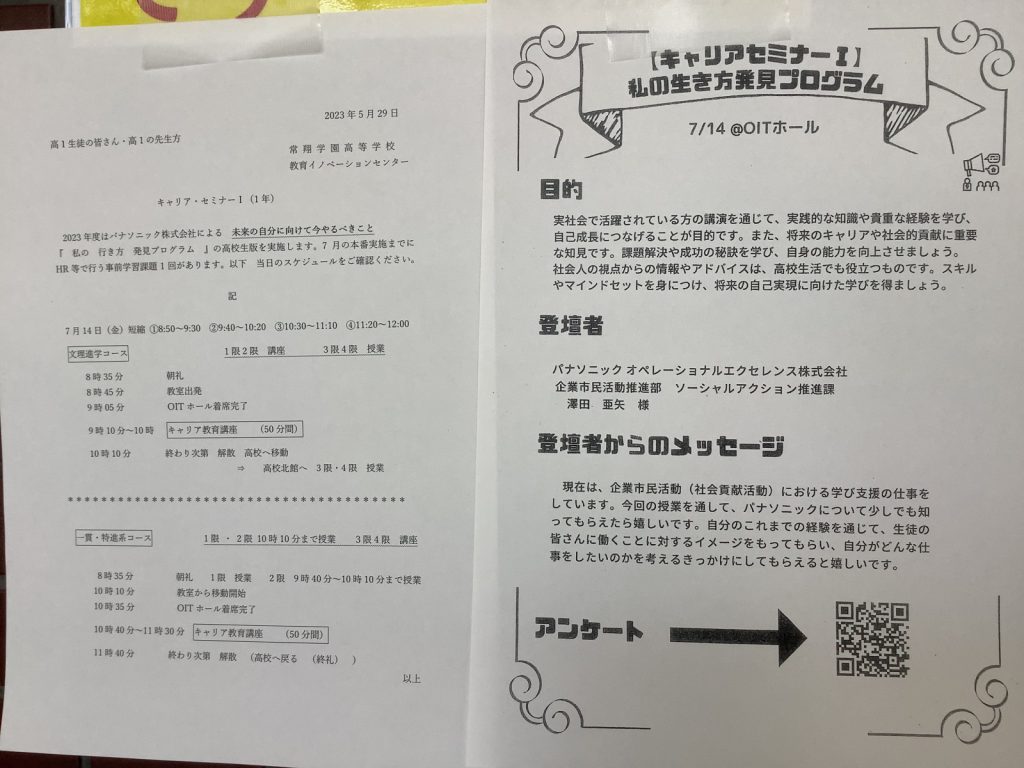 2023年5月29日
高1生徒の皆さん・高1の先生方
常翔学園高等学校
教育イノベーションセンター
キャリア・セミナーⅠ(1年)
2023年度はパナソニック株式会社による 未来の自分に向けて今やるべきこと
『 私の 行き方 発見プログラム 』の高校生版を実施します。7月の本番実施までに
HR等で行う事前学習課題1回があります。以下 当日のスケジュールをご確認ください。
記
7月14日(金)短縮 ①8:50~9:30 ②9:40~10:20 ③10:30~11:10 ④11:20~12:00
文理進学コース 1限2限 講座 3限4限 授業
8時35分 朝礼
8時45分 教室出発
9時05分 OITホール着席完了
9時10分~10時 キャリア教育講座 (50分間)
10時10分 終わり次第 解散 高校へ移動
⇒ 高校北館へ 3限・4限 授業
****************************************
一貫・特進系コース 1限・2限 10時10分まで授業 3限4限 講座
8時35分 朝礼 1限 授業 2限 9時40分~10時10分まで授業
10時10分 教室から移動開始
10時35分 OITホール着席完了
10時40分~11時30分 キャリア教育講座 (50分間)
11時40分 終わり次第 解散 (高校へ戻る (終礼) )
以上
【キャリアセミナーⅠ】
私の生き方発見プログラム
7/14 @OITホール
目的
実社会で活躍されている方の講演を通じて、実践的な知識や貴重な経験を学び、
自己成長につなげることが目的です。また、将来のキャリアや社会的貢献に重要
な知見です。課題解決や成功の秘訣を学び、自身の能力を向上させましょう。
社会人の視点からの情報やアドバイスは、高校生活でも役立つものです。スキル
やマインドセットを身につけ、将来の自己実現に向けた学びを得ましょう。
登壇者
パナソニック オペレーショナルエクセレンス株式会社
企業市民活動推進部 ソーシャルアクション推進課
澤田 亜矢 様
登壇者からのメッセージ
現在は、企業市民活動(社会貢献活動)における学び支援の仕事を
しています。今回の授業を通して、パナソニックについて少しでも知
ってもらえたら嬉しいです。自分のこれまでの経験を通じて、生徒の
皆さんに働くことに対するイメージをもってもらい、自分がどんな仕
事をしたいのかを考えるきっかけにしてもらえると嬉しいです。
アンケート